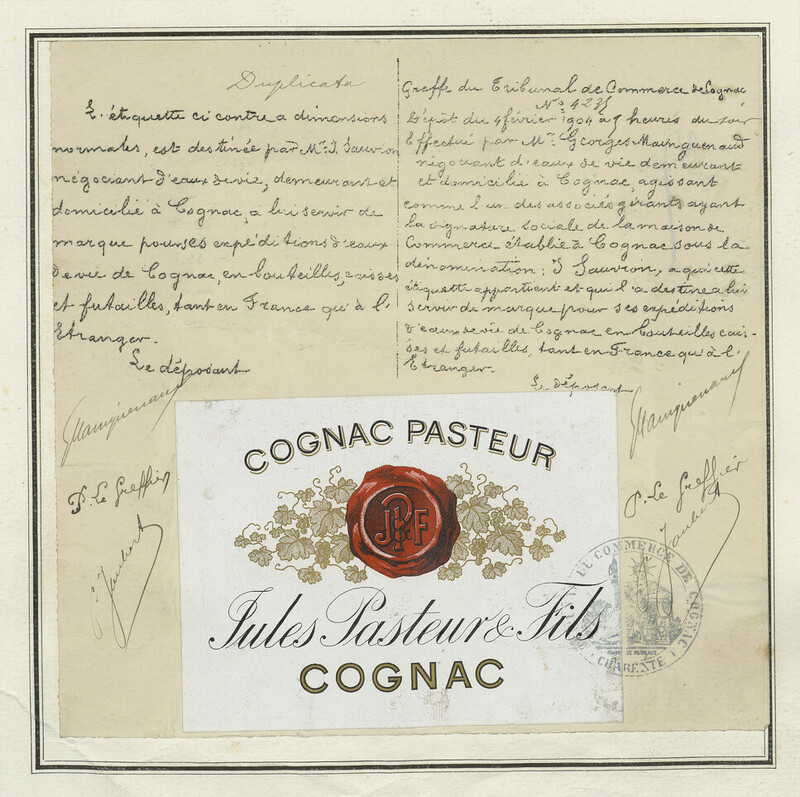 Duplicata
L'étiquette ci contre a dimensions
normales, est destinée par Mr. J. Sauvion
négociant d'eaux de vie, demeurant et
domicilié à Cognac, a lui servir de
marque pour ses expéditions d'eaux
de vie de Cognac, en bouteilles, caisses
et futailles, tant en France qu'à l'
Etranger.
Le déposant
P. Le Greffier
Greffe du Tribunal de Commerce de Cognac
No. 4235
Dépôt du 4 février 1904 à 7 heures du soir
Effectué par Mr. Georges Mainguenaud
négociant d'eaux de vie demeurant
et domicilié à Cognac, agissant
comme l'un des associés gérants ayant
la signature sociale de la maison de
Commerce établie à Cognac sous la
dénomination: J Sauvion, a qui cette
étiquette appartient et qui l'a destine a lui
servir de marque pour ses expéditions
d'eaux de vie de Cognac en bouteilles cais-
ses et futailles, tant en France qu'à l'
Etranger.
Le déposant
P. Le Greffier
COGNAC PASTEUR
JPF
Jules Pasteur & Fils
COGNAC
COMMERCE DE COGNAC
CHARENTE